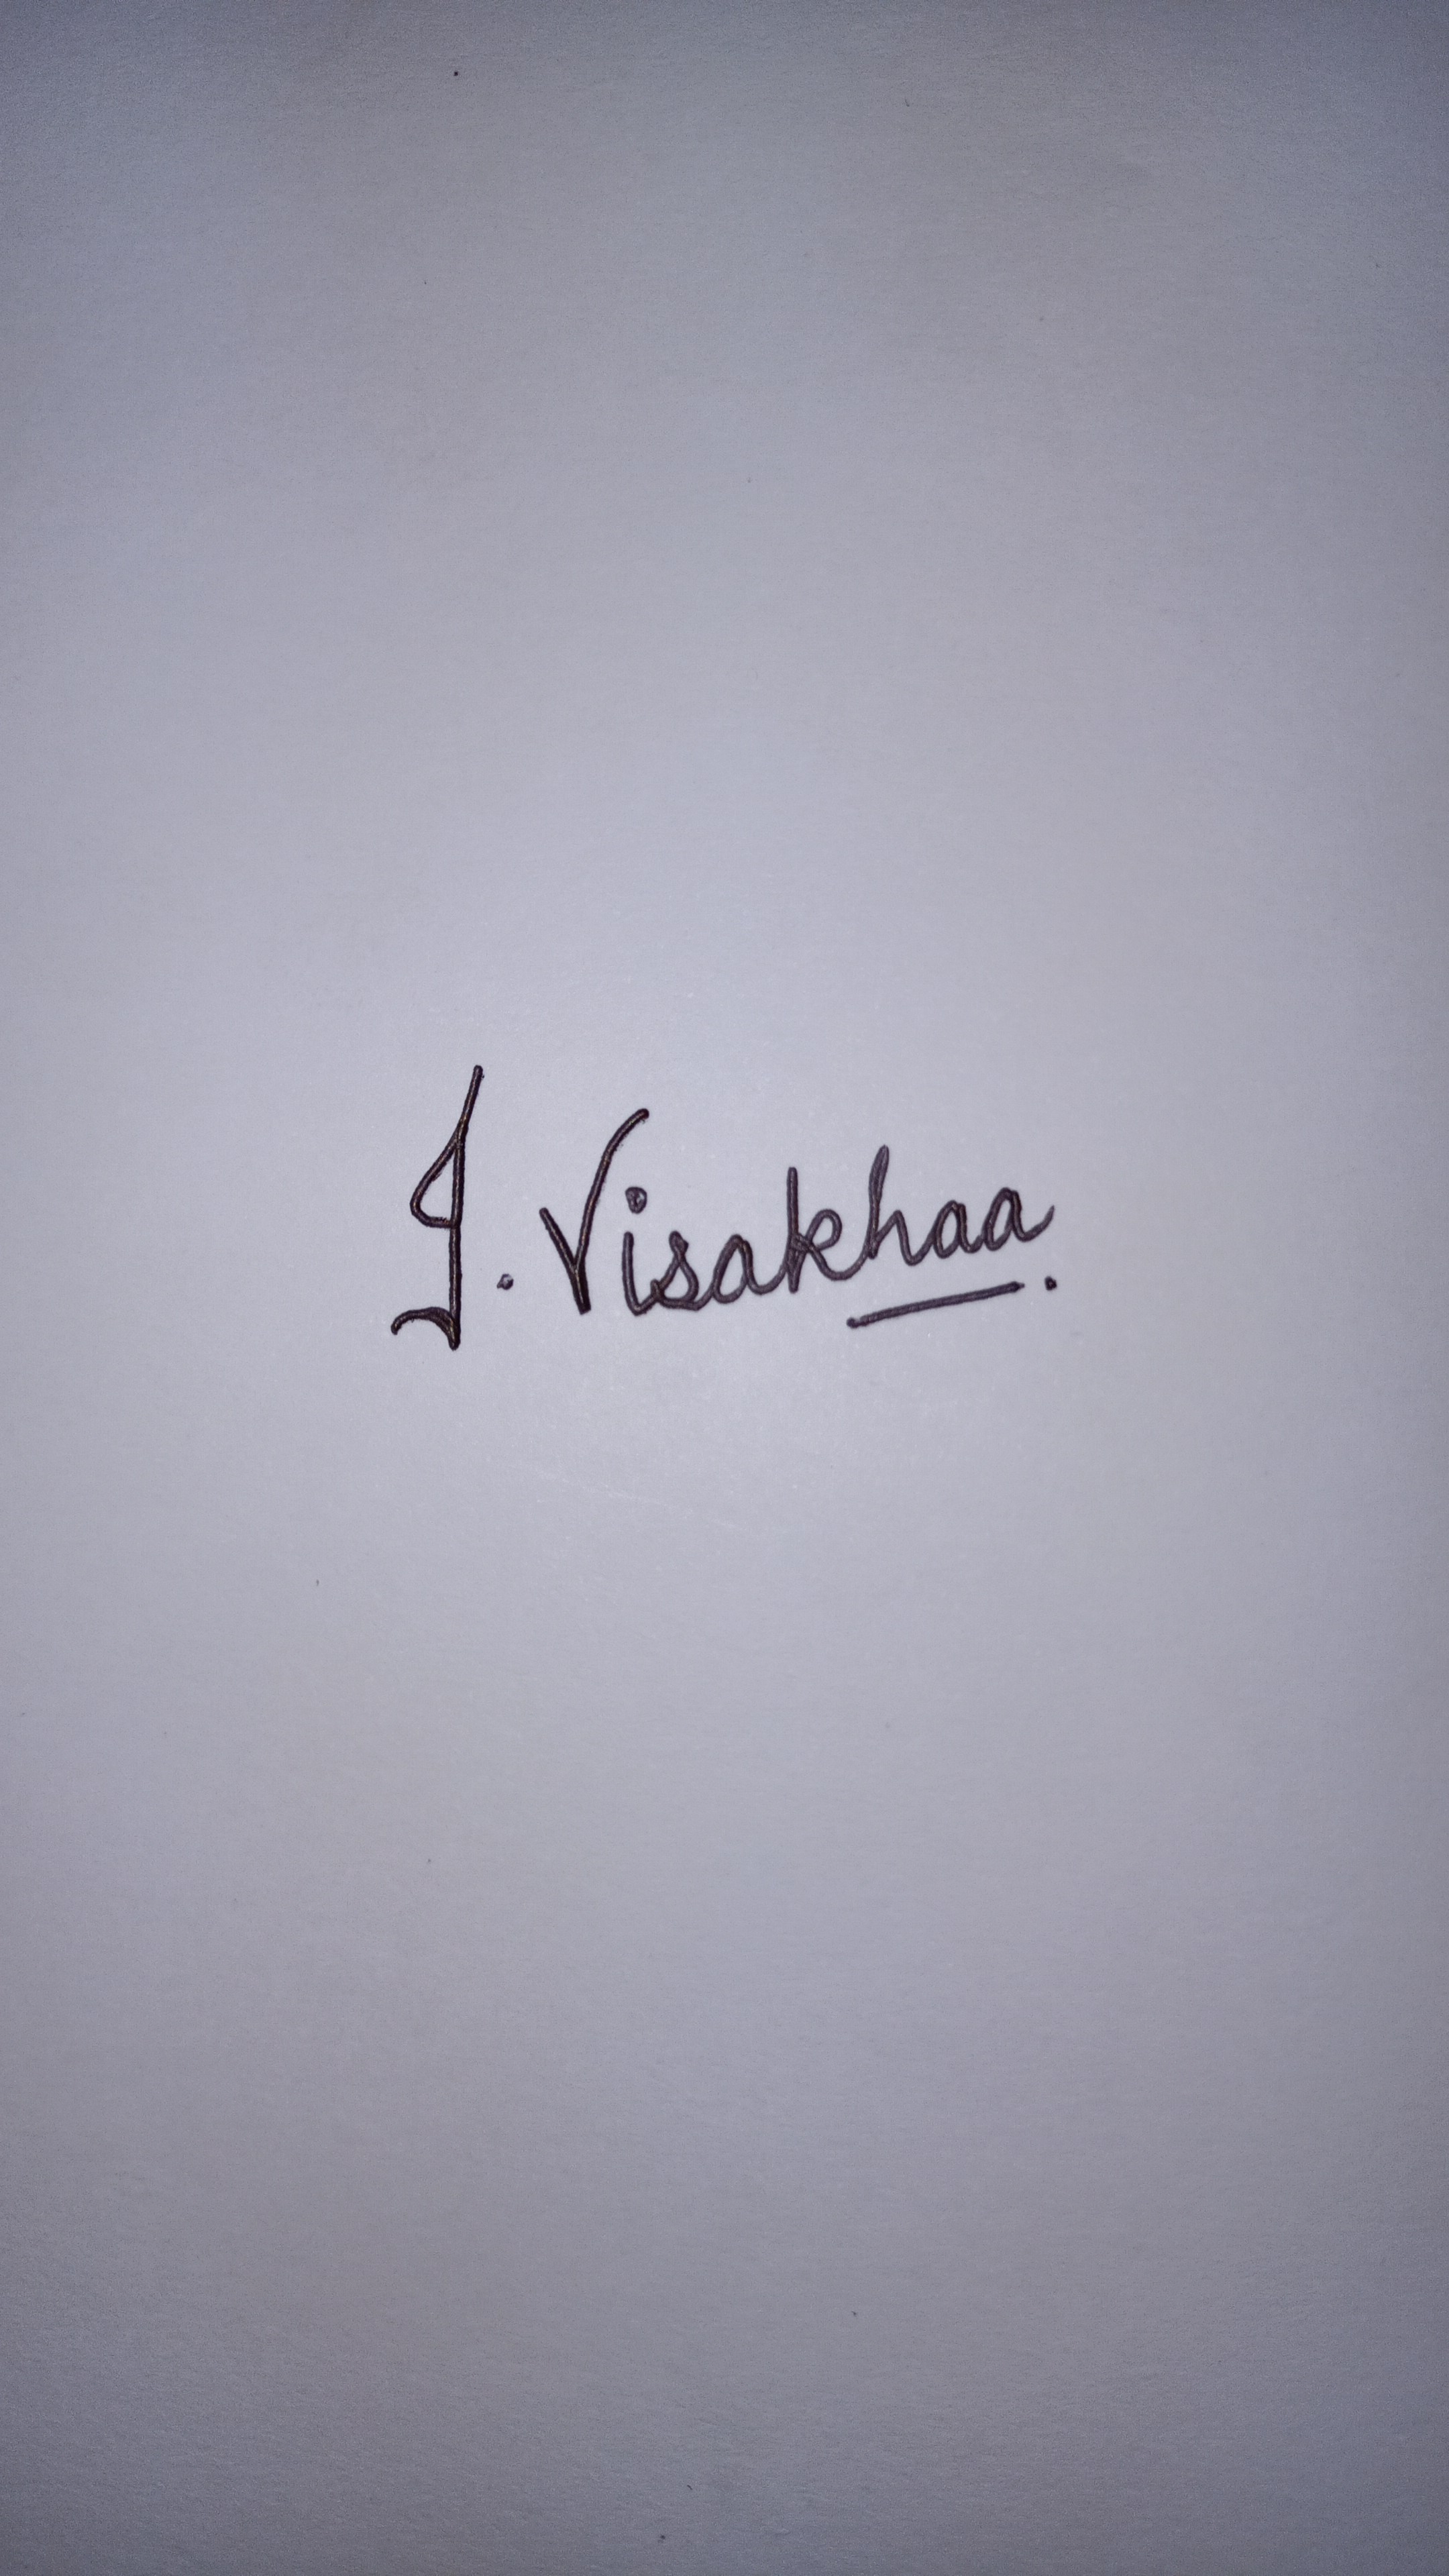 J. Visakhaa.